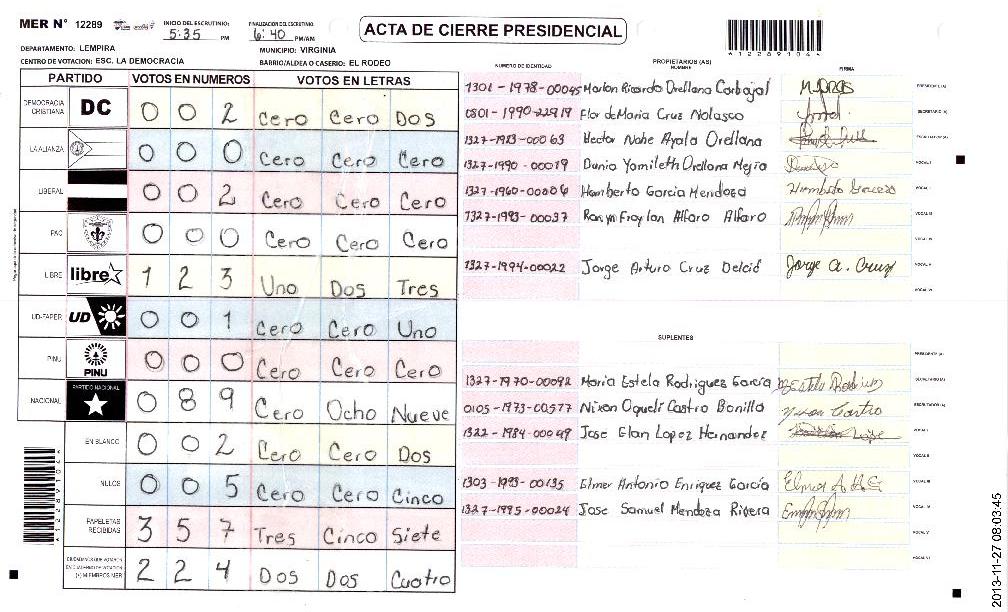 MER Nº 12289
INICIO DEL ESCRUTINIO: 5:35 PM
FINALIZACION DEL ESCRUTINIO: 6:40 PM/AM
ACTA DE CIERRE PRESIDENCIAL
*12289104*
DEPARTAMENTO: LEMPIRA
MUNICIPIO: VIRGINIA
CENTRO DE VOTACION: ESC. LA DEMOCRACIA
BARRIO/ALDEA O CASERIO: EL RODEO
PARTIDO VOTOS EN NUMEROS VOTOS EN LETRAS
DEMOCRACIA CRISTIANA DC 0 0 2 Cero Cero Dos
LA ALIANZA 0 0 0 Cero Cero Cero
LIBERAL 0 0 2 Cero Cero Cero
PAC 0 0 0 Cero Cero Cero
LIBRE libre 1 2 3 Uno Dos Tres
UD-FAPER UD 0 0 1 Cero Cero Uno
PINU PINU 0 0 0 Cero Cero Cero
NACIONAL PARTIDO NACIONAL 0 8 9 Cero Ocho Nueve
EN BLANCO 0 0 2 Cero Cero Dos
NULOS 0 0 5 Cero Cero Cinco
PAPELETAS RECIBIDAS 3 5 7 Tres Cinco Siete
CIUDADANOS QUE VOTARON (+) MIEMBROS MER 2 2 4 Dos Dos Cuatro
PROPIETARIOS (AS)
NUMERO DE IDENTIDAD NOMBRE FIRMA
1301-1978-00045 Marlon Ricardo Orellana Carbajal PRESIDENTE (A)
0801-1990-22919 Flor de Maria Cruz Nolasco SECRETARIO (A)
1327-1983-00063 Hector Nahe Ayala Orellana ESCRUTADOR (A)
1327-1990-00019 Dunia Yamileth Orellana Mejia VOCAL I
1327-1960-00006 Humberto Garcia Mendoza VOCAL II
1327-1993-00037 Froylan Alfaro Alfaro VOCAL III
VOCAL IV
1327-1994-00022 Jorge Arturo Cruz Delcid Jorge A. Cruz VOCAL V
VOCAL VI
SUPLENTES
PRESIDENTE (A)
1327-1970-00092 Maria Estela Rodriguez Garcia SECRETARIO (A)
0105-1973-00577 Nixon Oqueli Castro Bonilla Nixon Castro ESCRUTADOR (A)
1322-1984-00049 Jose Elan Lopez Hernandez VOCAL I
VOCAL II
1303-1993-00135 Elmer Antonio Enriquez Garcia VOCAL III
1327-1995-00024 Jose Samuel Mendoza Rivera VOCAL IV
VOCAL V
VOCAL VI
2013-11-27 08:03:45